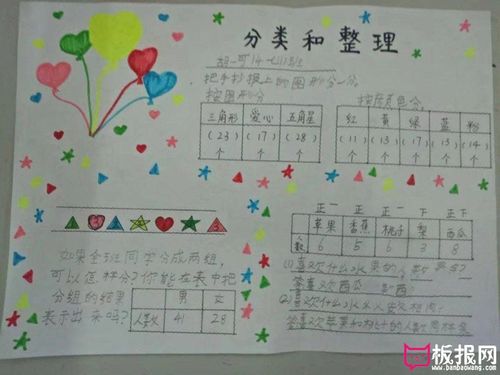 分类和整理
把手抄报上的图形分一分。
按图形分 按颜色分
三角形 爱心 五角星
(23)个 (17)个 (28)个
红 黄 绿 蓝 粉
(11)个 (13)个 (17)个 (13)个 (14)个
如果全班同学分成两组,
可以怎样分?你能在表中把
分组的结果
表示出来吗?
男 女
人数 41 28
正一 正 正一 下 正下
苹果 香蕉 桃子 梨 西瓜
人数 6 5 6 3 8
(1)喜欢什么水果的人数
答喜欢西瓜
(2)喜欢什么水
答喜欢苹果和桃子的人数同样多
板报网
www.banbaowang.com